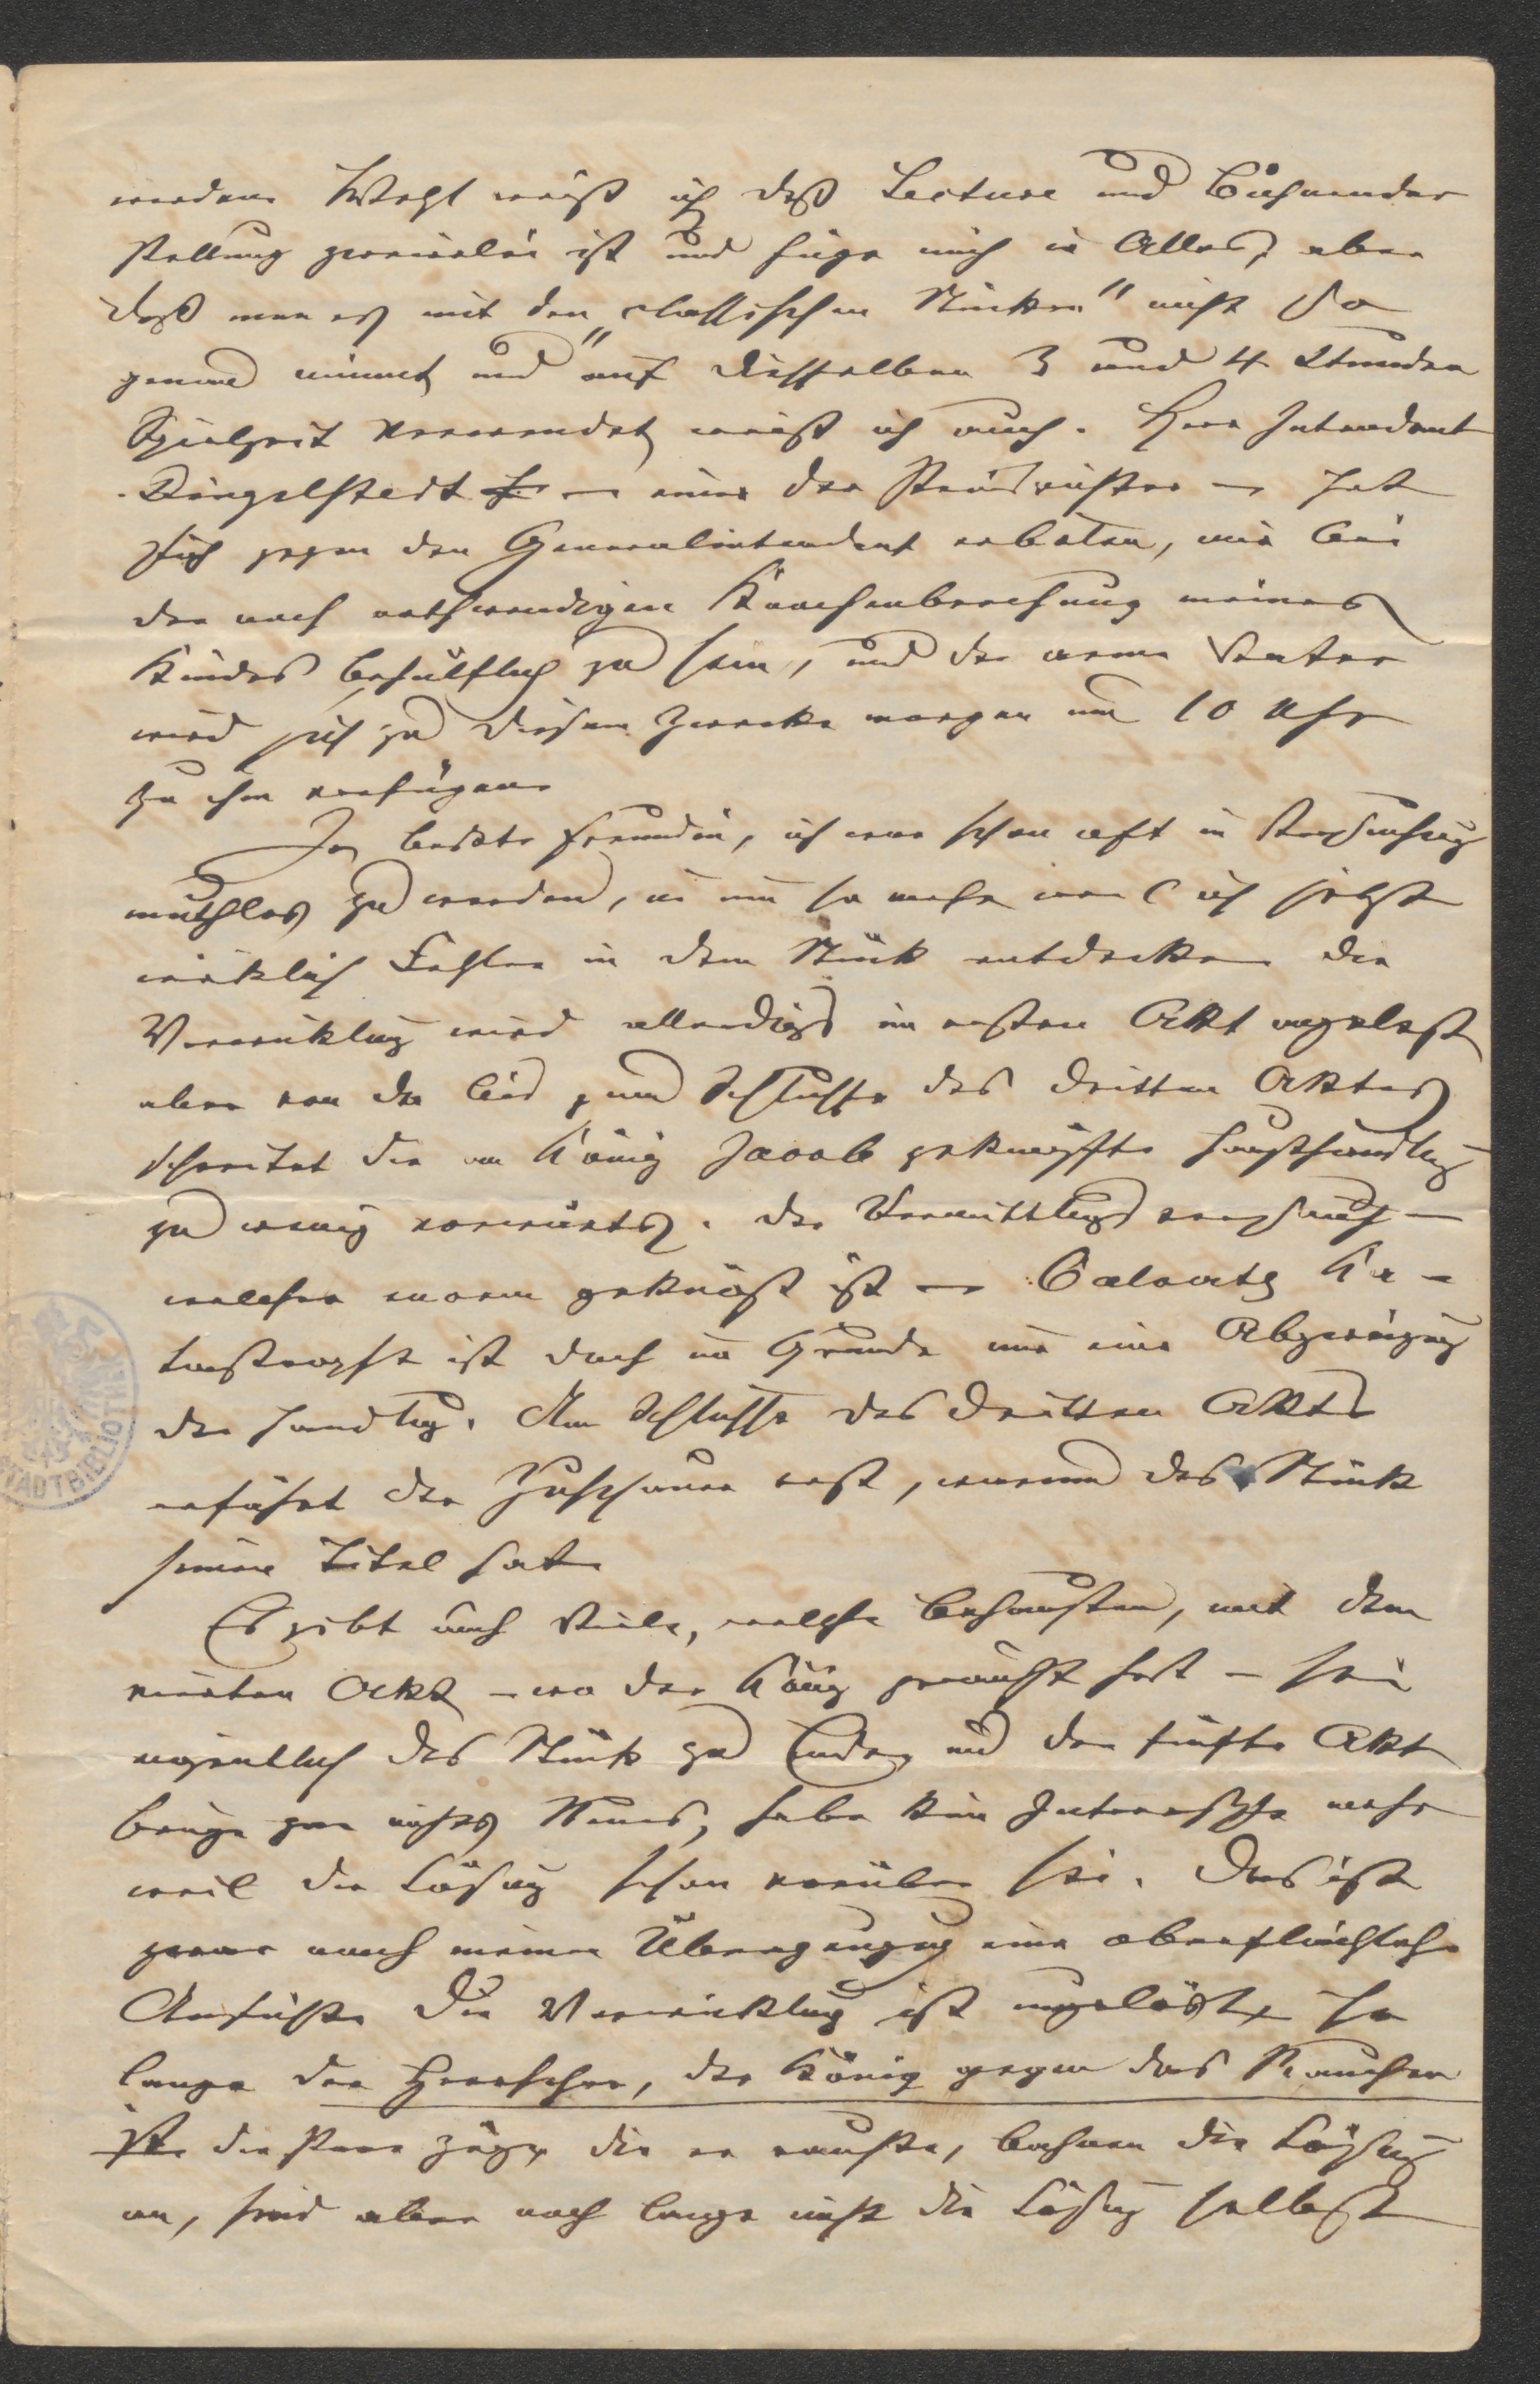 werden. Wohl weiß ich daß Lecture und Bühnendar
stellung zweierlei ist und füge mich in Alles, aber
daß man es mit den „classischen Stücken" nicht so
genau nimmt und auf dieselben 3 und 4 Stunden
Spielzeit verwendet, weiß ich auch. Herr Intendant
Dingelstedt — einer der Preisrichter — hat
sich gegen den Generalintendant erboten, mir bei
der noch nothwendigen Knochenbrechung meines
Kindes behülflich zu sein, und der arme Vater
wird sich zu diesem Zwecke morgen um 10 Uhr
zu ihm verfügen.
Ja, beste Freundin, ich war schon oft in Versuchung
muthlos zu werden, u um so mehr weil ich jetzt
wirklich Fehler in dem Stück entdecke. Die
Verwicklung wird allerdings im ersten Akt angelegt
aber von da bis zum Schlusse des dritten Aktes
schreitet die an König Jacob geknüpfte Haupthandlung
zu wenig vorwärts. Der Vermittlungsversuch —
welcher woran geknüpft ist — Calverts Ka-
tastrophe ist doch im Grunde nur eine Abzweigung
der Handlung. Am Schlusse des dritten Akts
erfährt der Zuschauer erst, warum das Stück
seinen Titel hat.
Es gibt auch Viele, welche behaupten, mit dem
vierten Akt – wo der König geraucht hat – sei
eigentlich das Stück zu Ende, und der fünfte Akt
bringe gar nichts Neues, habe kein Interesse mehr
weil die Lösung schon vorüber sei. Das ist
zwar nach meiner Überzeugung eine oberflächliche
Ansicht. Die Verwicklung ist ungelöst, so
lange der Herrscher, der König gegen das Rauchen
ist. die paar Züge, die er rauchte, bahnen die Lösung
an, sind aber noch lange nicht die Lösung selbst
STADTBIBLIOTHEK